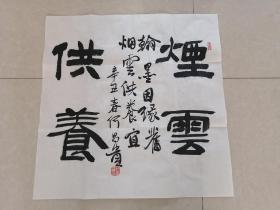 煙雲
翰墨因缘舊
烟雲供養宜
辛丑春何
供養